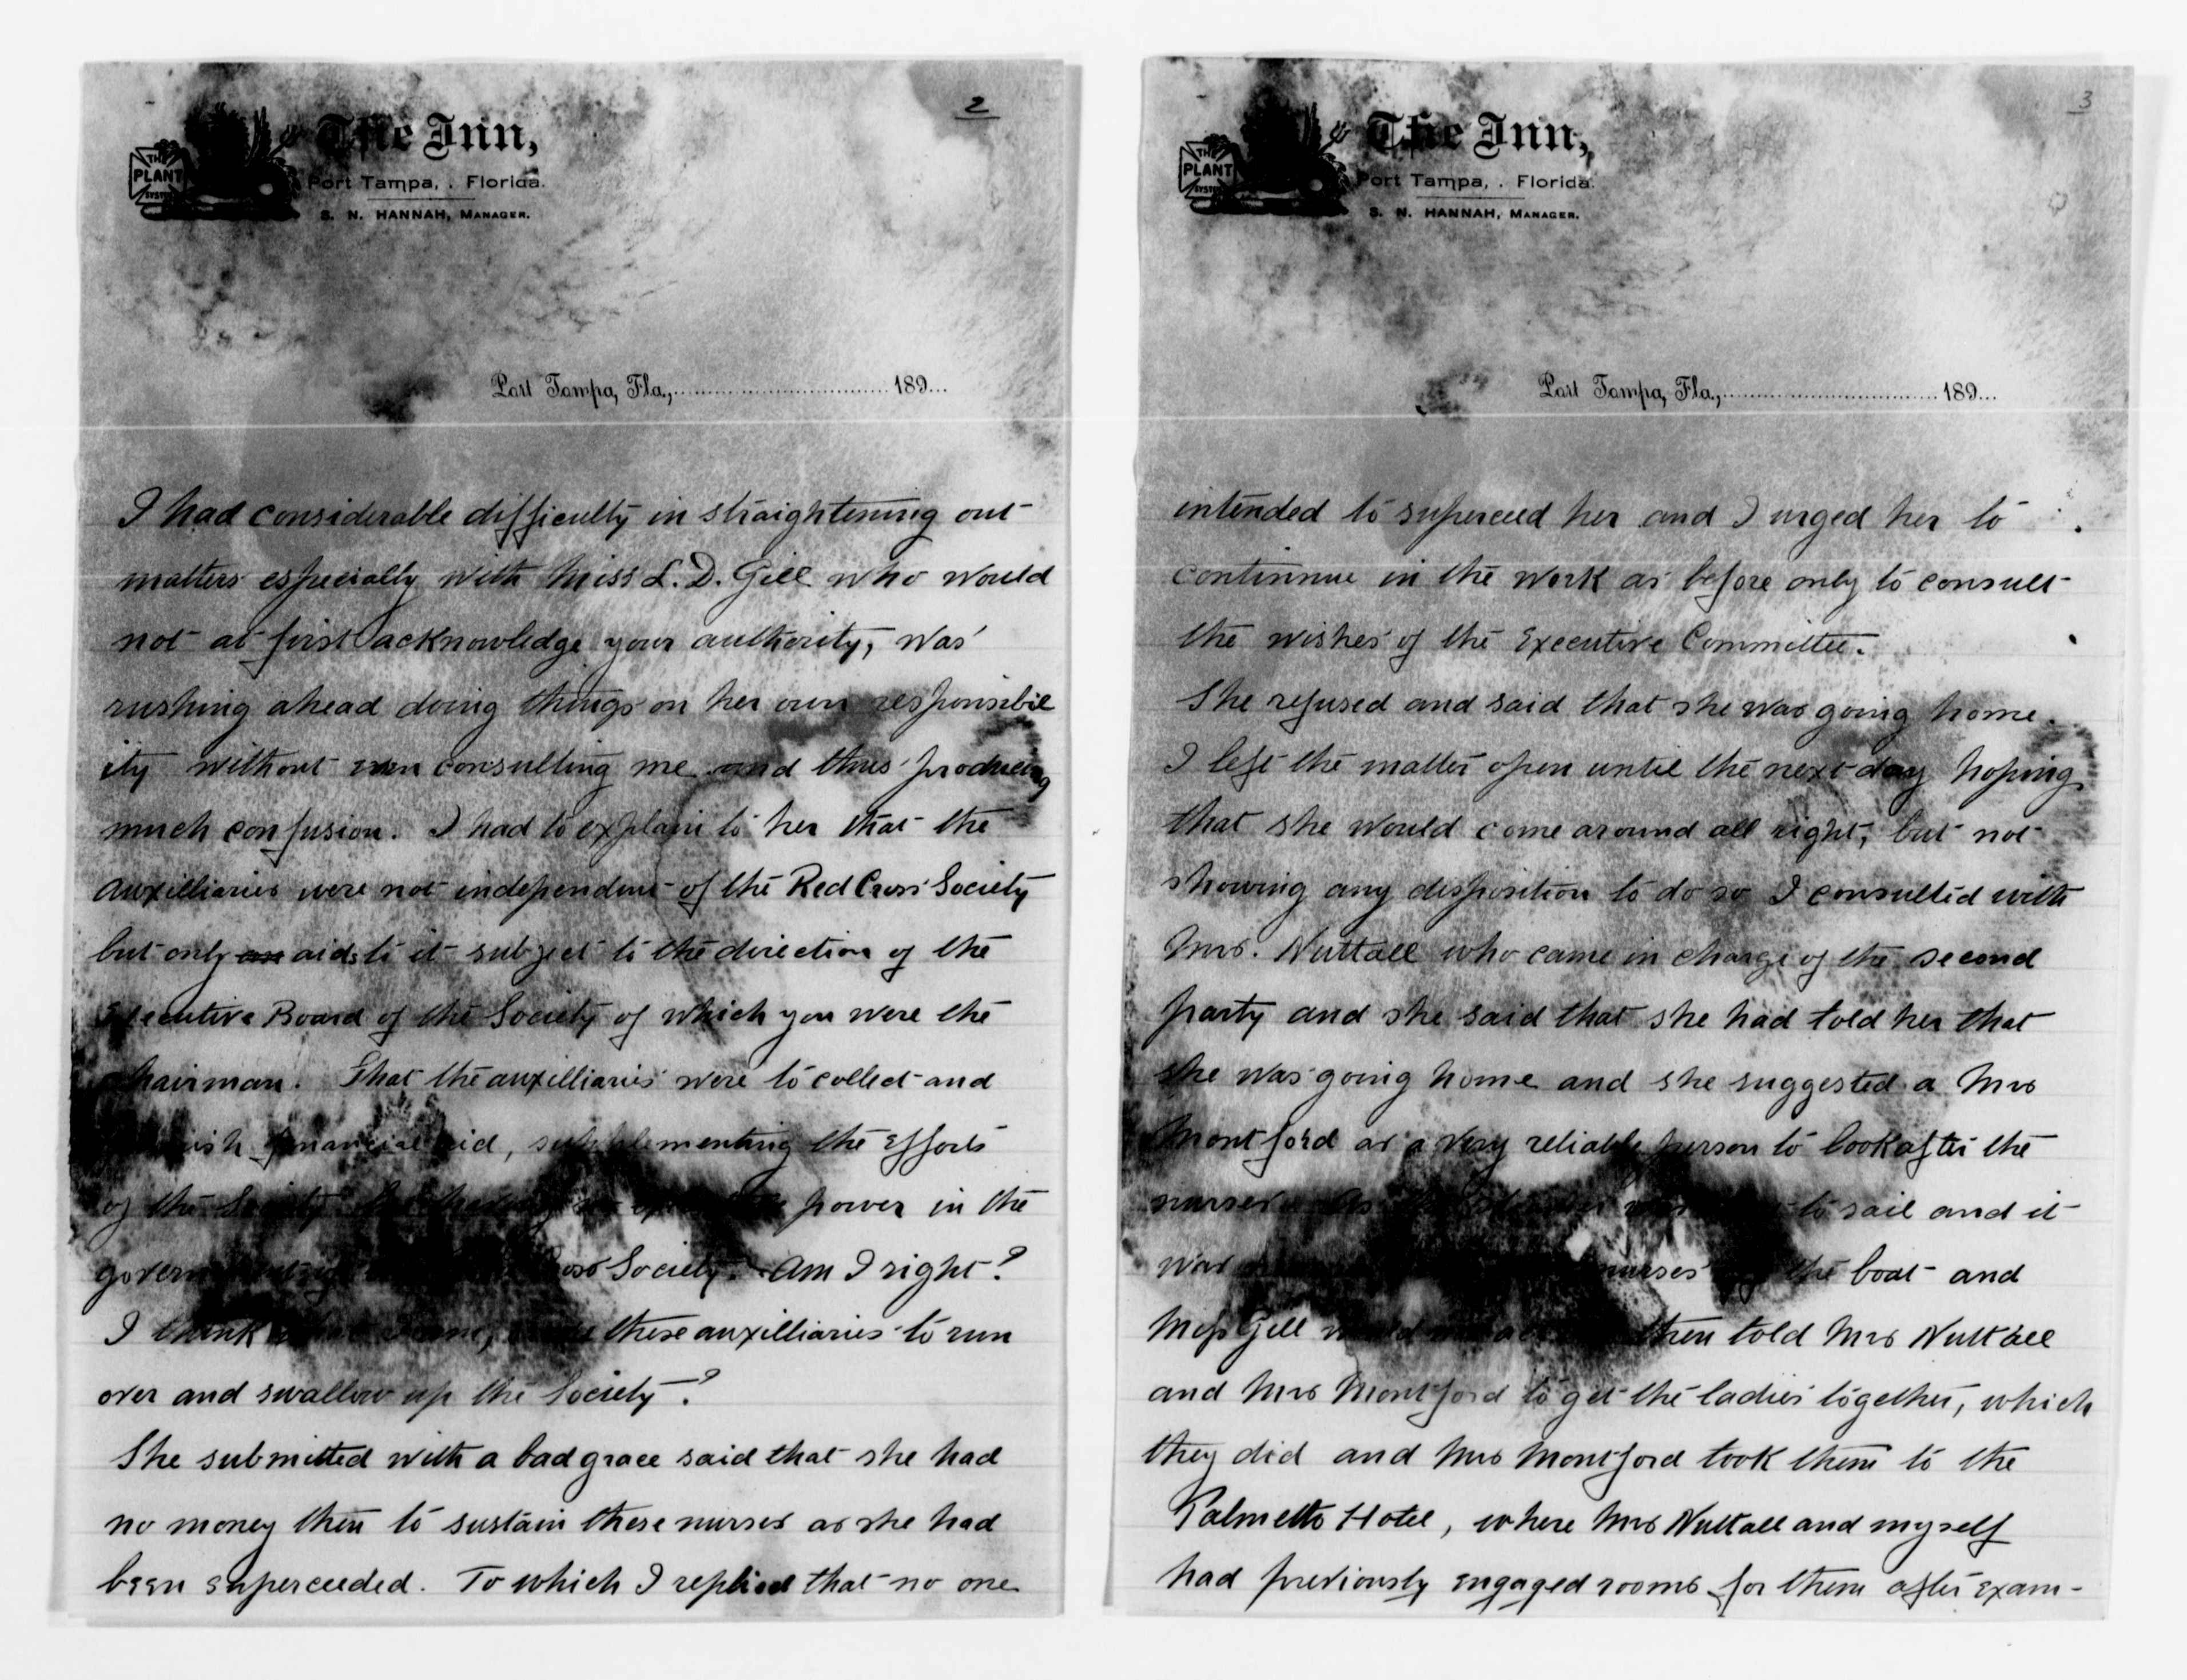 2
THE PLANT SYSTEM
The Inn,
Port Tampa, . Florida.
S. N. HANNAH, MANAGER.
Port Tampa, Fla., 189
I had considerable difficulty in straightening out
matters especially with Miss L. D. Gill who would
not at first acknowledge your authority, was
rushing ahead doing things on her own responsibil
ity without even consulting me and thus producing
much confusion. I had to explain to her that the
auxilliaries were not independent of the Red Cross Society
but only an aids to it subject to the direction of the
Executive Board of the Society of which you were the
Chairman. That the auxilliaries were to collect and
financial aid, supplementing the efforts
of the Society power in the
Society. Am I right?
I think these auxilliaries to run
over and swallow up the Society?
She submitted with a bad grace said that she had
no money then to sustain these nurses as she had
been superceeded. To which I replied that no one
3
THE PLANT SYSTEM
The Inn,
Port Tampa, . Florida.
S. N. HANNAH, MANAGER.
Port Tampa, Fla., 189
intended to superceed her and I urged her to
continnue in the work as before only to consult
the wishes of the Executive Committee.
She refused and said that she was going home.
I left the matter open until the next day hoping
that she would come around all right, but not
showing any disposition to do so I consulted with
Mrs. Nuttall who came in charge of the second
party and she said that she had told her that
she was going home and she suggested a Mrs
Montford as a very reliable person to look after the
nurses. As the to sail and it
was nurses the boat and
Miss Gill then told Mrs Nuttall
and Mrs Montford to get the ladies together, which
they did and Mrs Montford took them to the
Palmetto Hotel, where Mrs Nuttall and myself
had previously engaged rooms for them after exam-